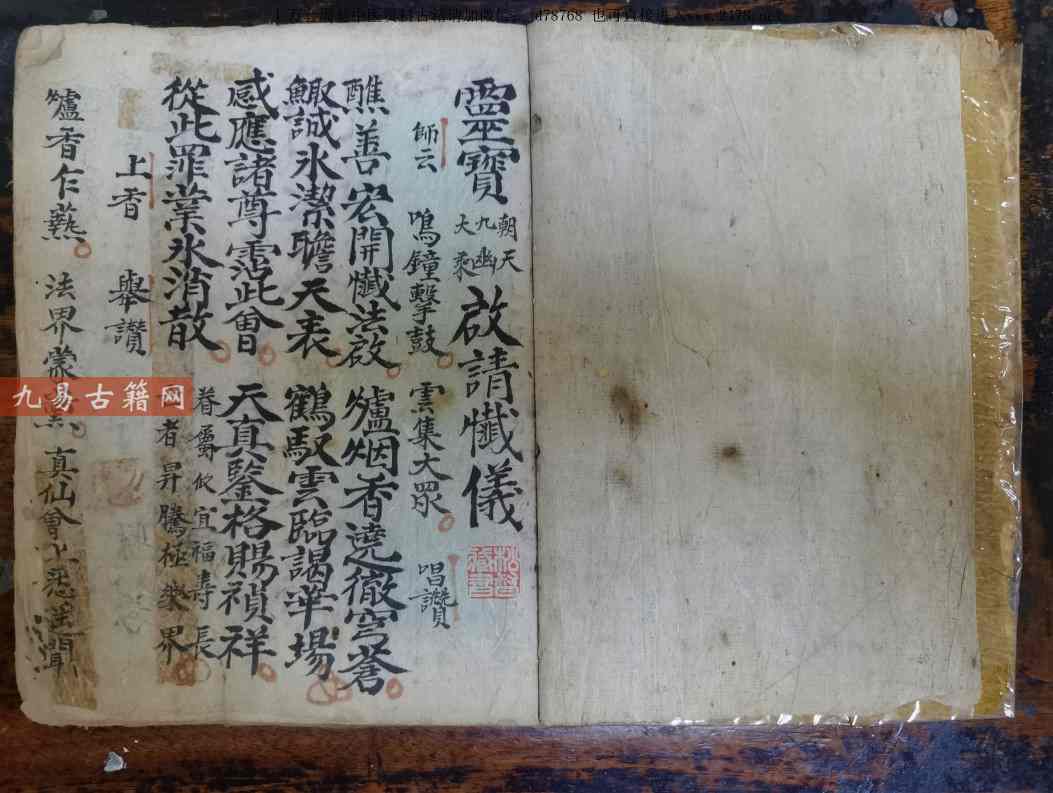 靈寶朝天九幽大乘啟請懺儀
師云 鳴鐘擊鼓 雲集大眾 唱讚
醮善宏開懺法啟 爐烟香遶徹穹蒼
鯫誠氷潔瞻天表 鶴馭雲臨謁場
感應諸尊霑此會 天真鑒格賜禎祥
從此罪業氷消散 眷屬攸宜福壽長
者昇騰極樂界
上香 舉讚
爐香乍爇 法界蒙 真仙會上悉遙聞
九易古籍网
78768 也可直接进